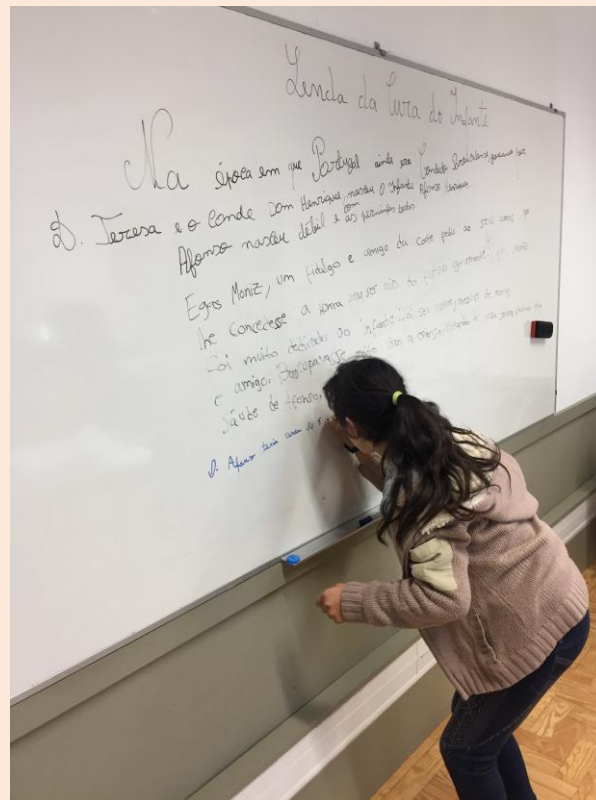 Lenda da Cura do Infante
Na época em que Portugal ainda era Condado Portucalense, governado por
D. Teresa e o Conde Dom Henrique, nasceu o Infante Afonso Henriques
Afonso nasceu débil e com as perninhas tortas
Egas Moniz, um fidalgo e amigo da corte pediu ao seu amo que
lhe concedesse a honra ser aio do futuro governante,
Foi muito dedicado ao infante, foi seu mestre de armas
e amigo. com a criança,
saúde de Afonso.
D. Afonso teria cerca de 5